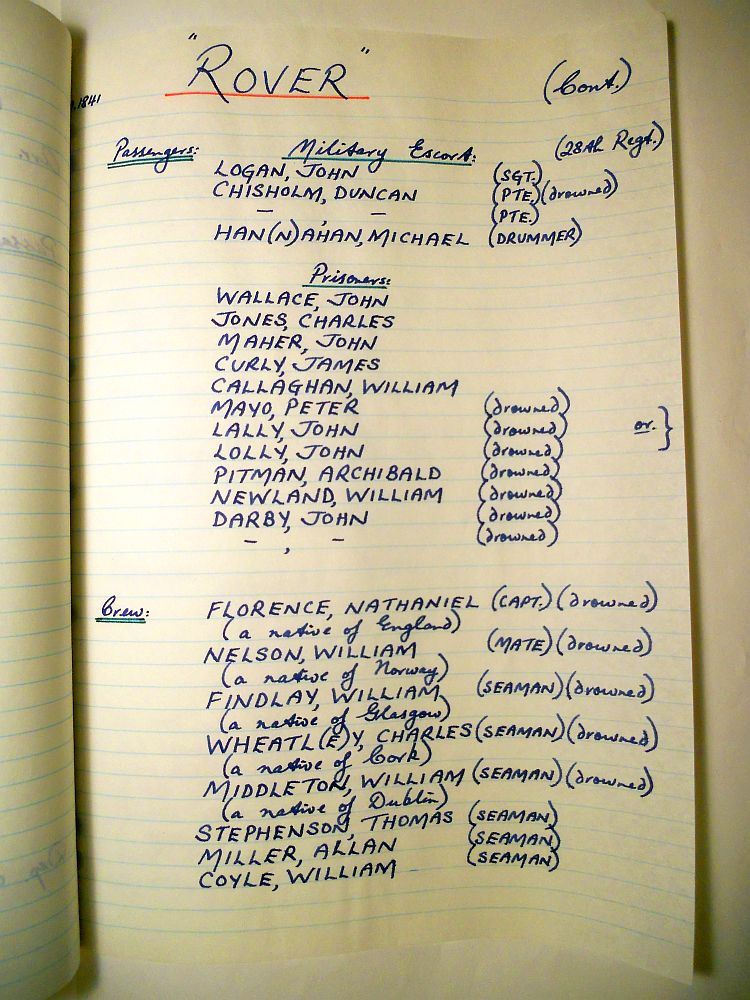 "ROVER" (Cont.)
1841
Passengers: Military Escort: (28th Regt.)
LOGAN, JOHN (SGT.)
CHISHOLM, DUNCAN (PTE.) (drowned)
— , — (PTE.)
HAN(N)AHAN, MICHAEL (DRUMMER)
Prisoners:
WALLACE, JOHN
JONES, CHARLES
MAHER, JOHN
CURLY, JAMES
CALLAGHAN, WILLIAM
MAYO, PETER (drowned)
LALLY, JOHN (drowned) or. }
LOLLY, JOHN (drowned)
PITMAN, ARCHIBALD (drowned)
NEWLAND, WILLIAM (drowned)
DARBY, JOHN (drowned)
— , — (drowned)
Crew: FLORENCE, NATHANIEL (CAPT.) (drowned)
(a native of England)
NELSON, WILLIAM (MATE) (drowned)
(a native of Norway)
FINDLAY, WILLIAM (SEAMAN) (drowned)
(a native of Glasgow)
WHEATL(E)Y, CHARLES (SEAMAN) (drowned)
(a native of Cork)
MIDDLETON, WILLIAM (SEAMAN) (drowned)
(a native of Dublin)
STEPHENSON, THOMAS (SEAMAN)
MILLER, ALLAN (SEAMAN)
COYLE, WILLIAM (SEAMAN)